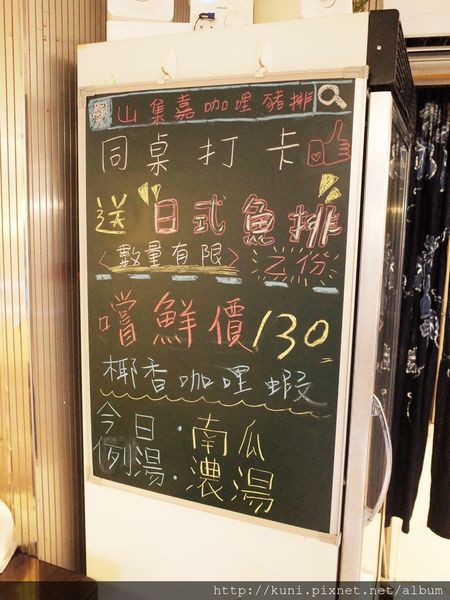 山集嘉咖哩豬排
同桌打卡
送"日式魚排"
<數量有限>之份
嚐鮮價130
椰香咖哩蝦
今日·南瓜
例湯·濃湯
http://kuni.pixnet.net/album